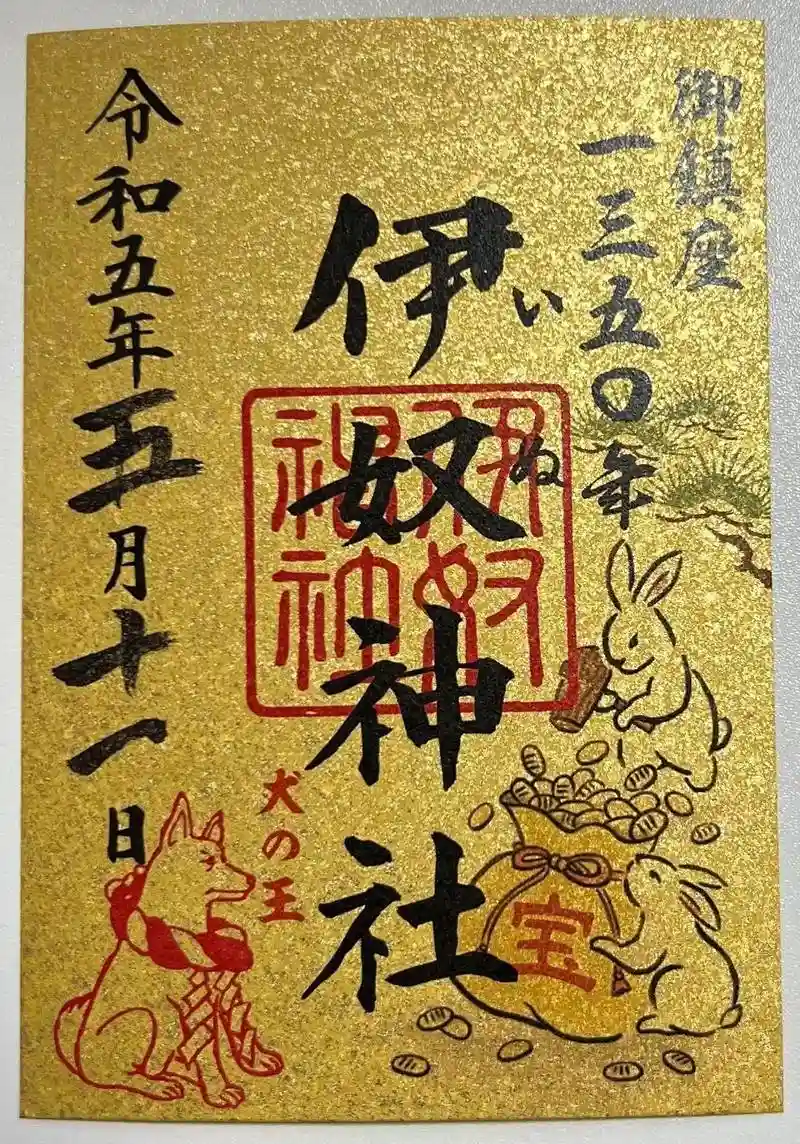 御鎮座
一三五〇年
伊奴神社
いぬ
伊奴
神社
令和五年五月十一日
犬の王
宝